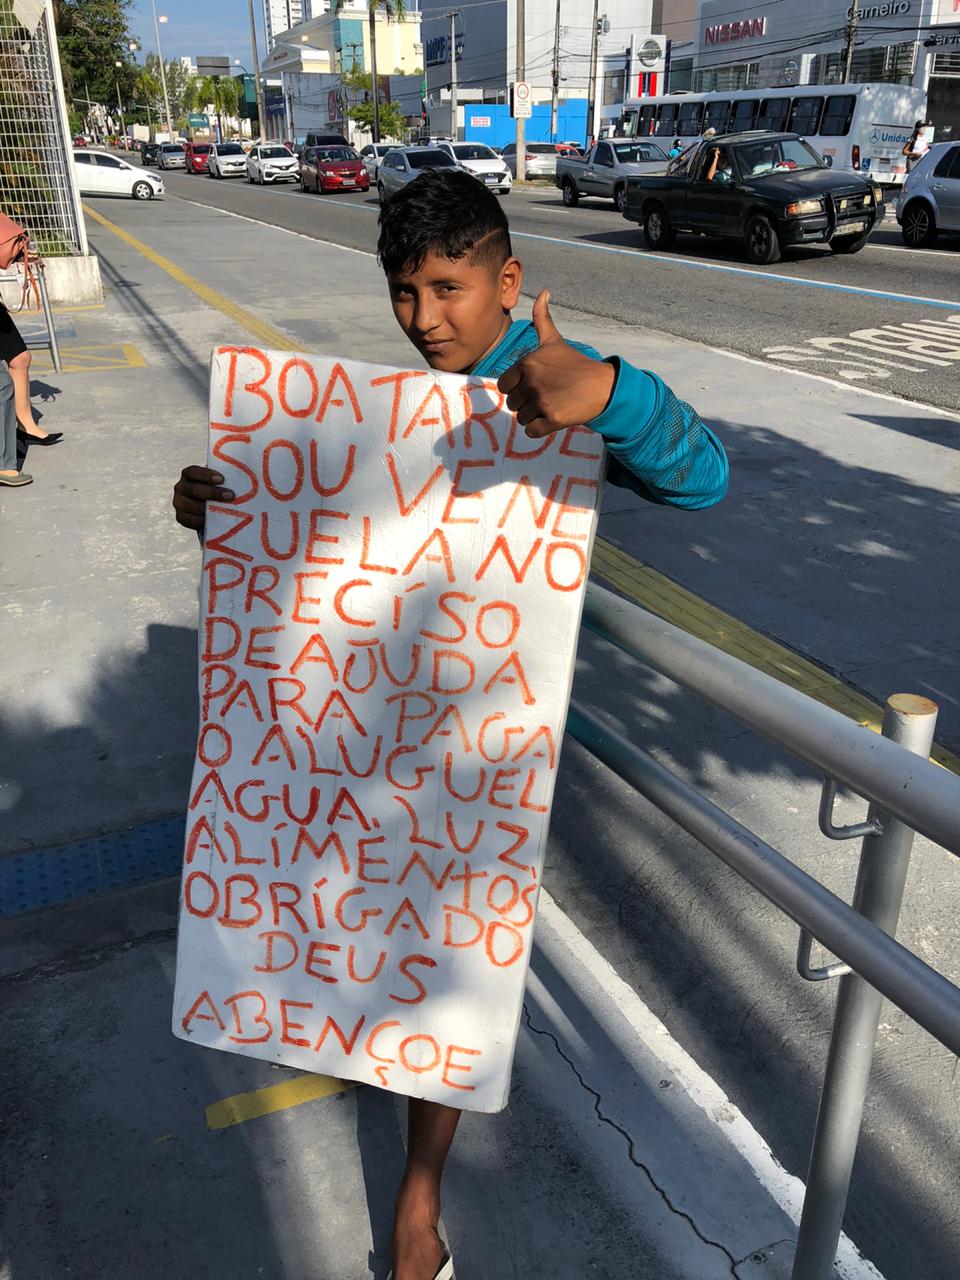 BOA TARDE
SOU VENE
ZUELANO
PRECÍSO
DE AJUDA
PARA PAGA
O ALUGUEL
AGUA. LUZ
ALÍMENTOS
OBRÍGADO
DEUS
ABENÇOE
NISSAN
Carneiro